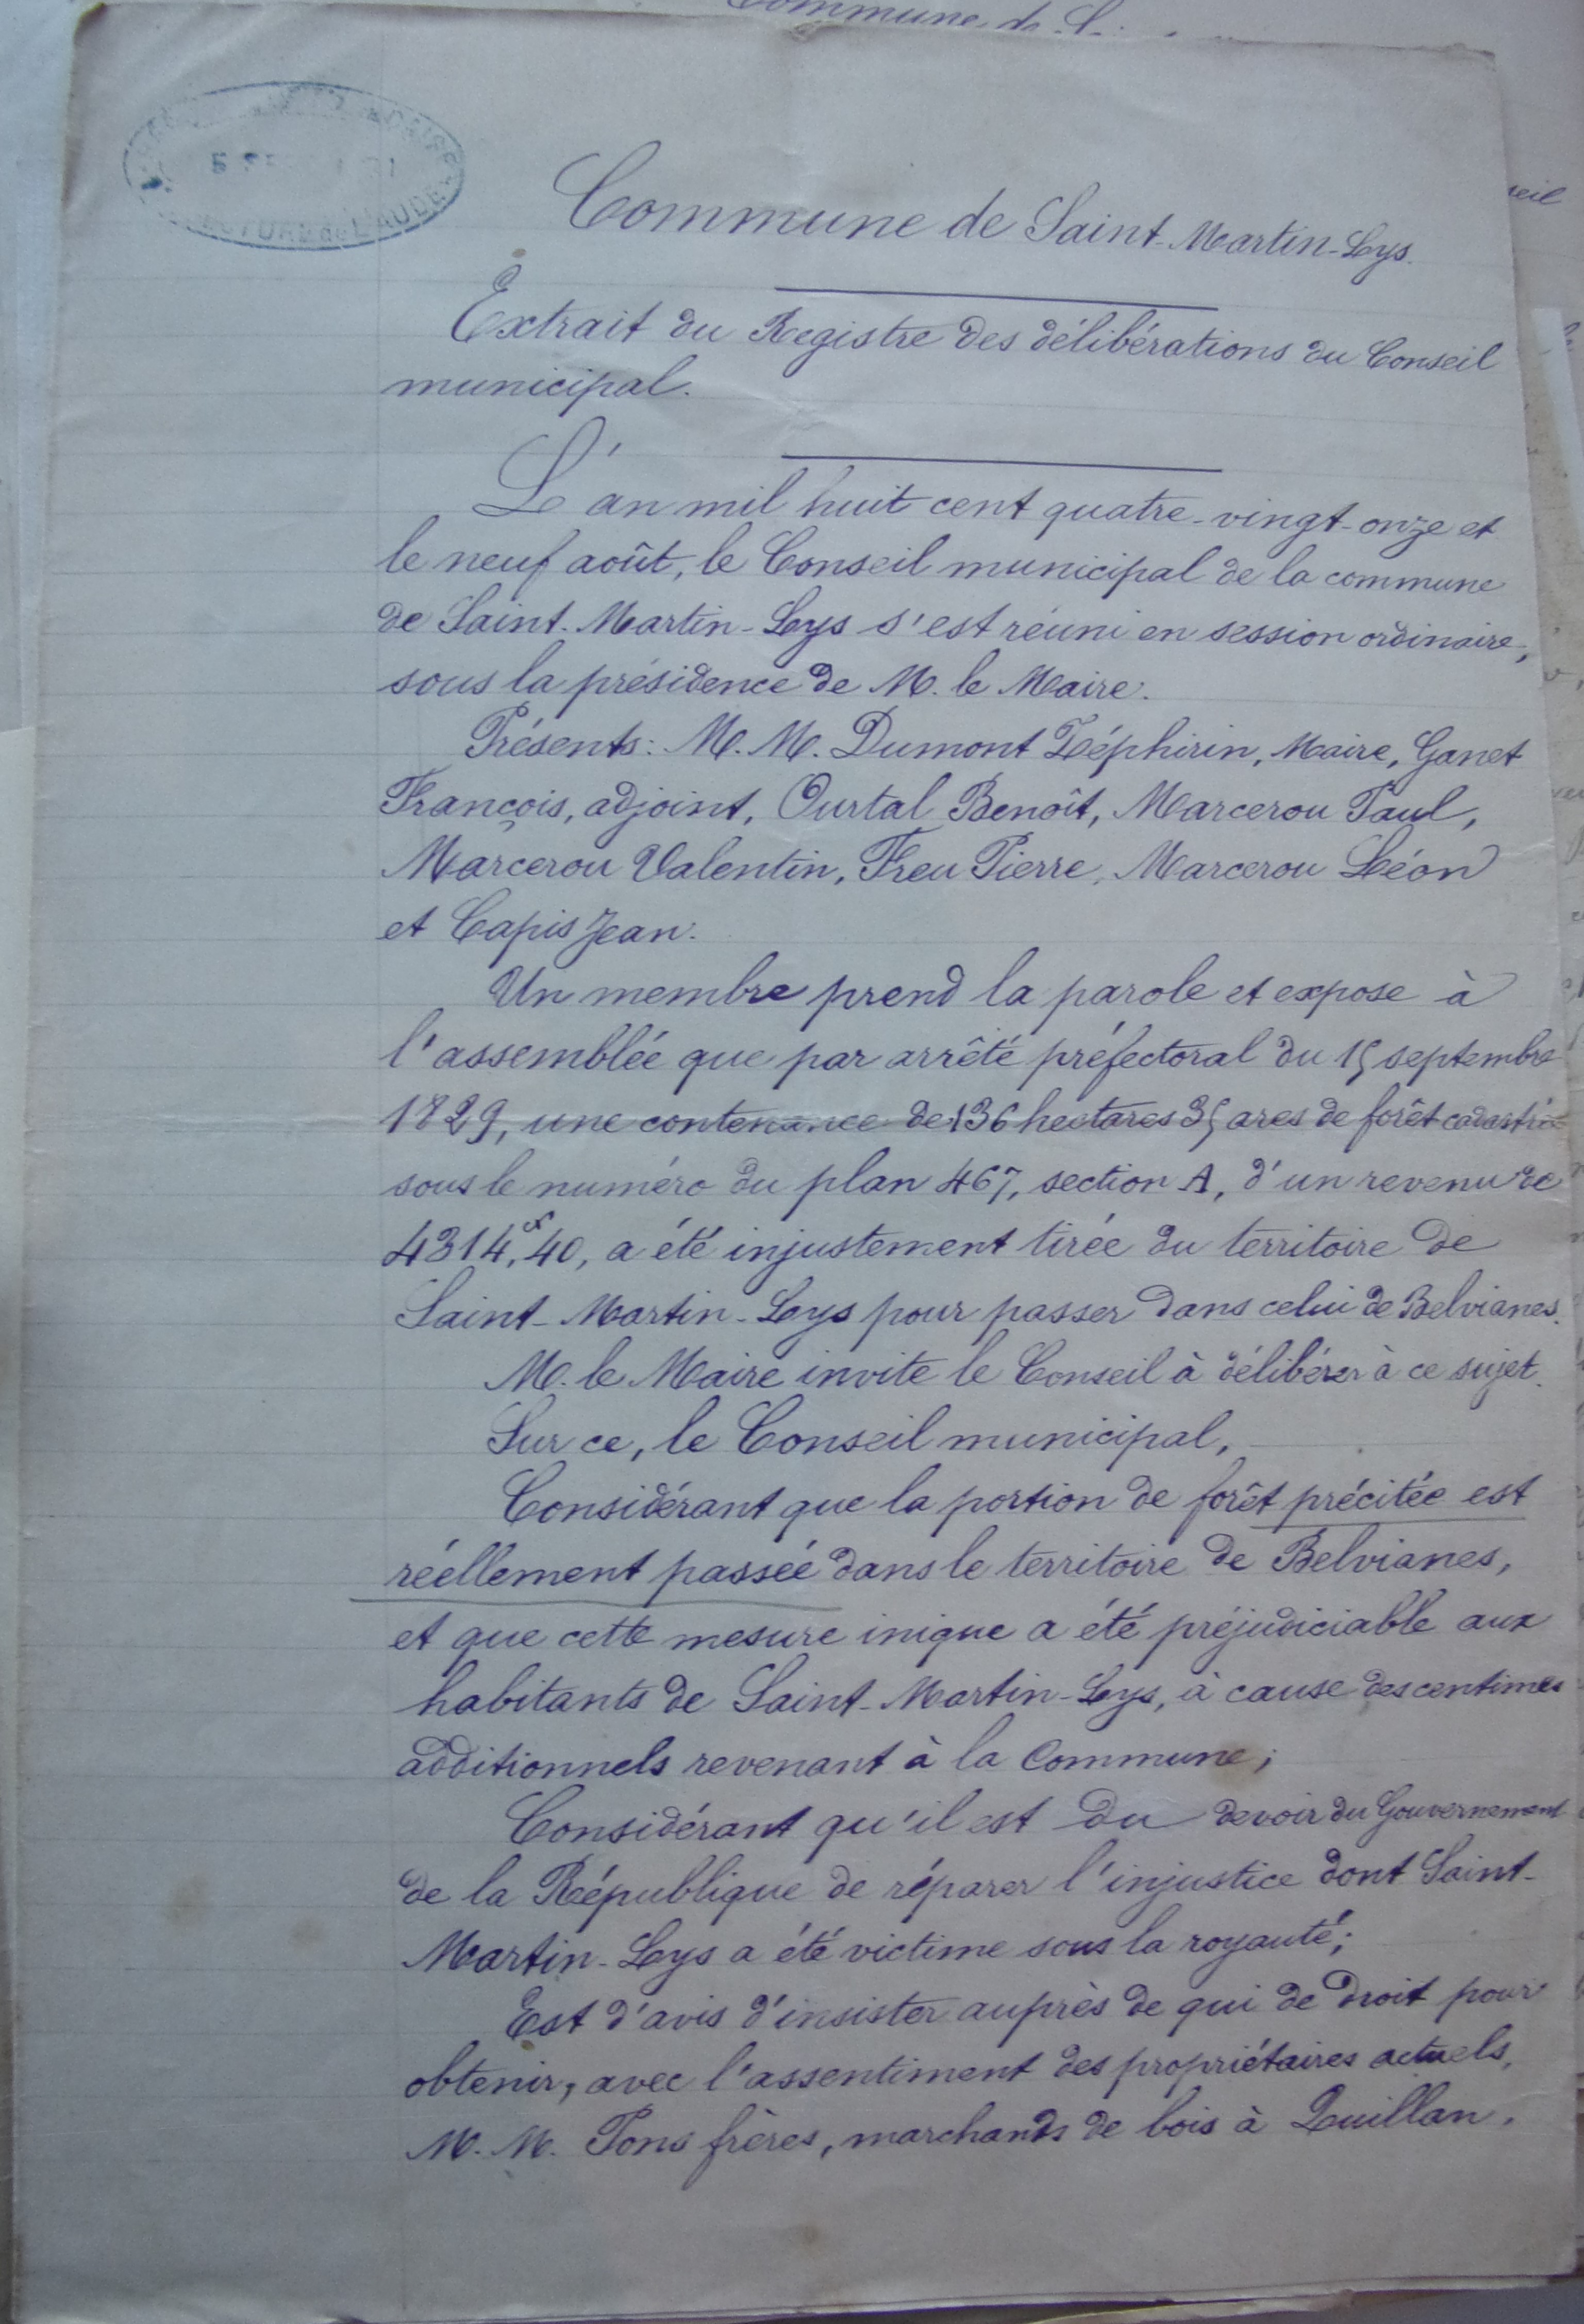 Commune de Saint-Martin-Lys.
Extrait du Registre des délibérations du Conseil
municipal.
L'an mil huit cent quatre-vingt-onze et
le neuf août, le Conseil municipal de la commune
de Saint-Martin-Lys s'est réuni en session ordinaire,
sous la présidence de M. le Maire.
Présents: M. M. Dumont Zéphirin, Maire, Ganet
François, adjoint, Ourtal Benoît, Marcerou Paul,
Marcerou Valentin, Freu Pierre, Marcerou Léon
et Capis Jean.
Un membre prend la parole et expose à
l'assemblée que par arrêté préfectoral du 15 septembre
1829, une contenance de 136 hectares 35 ares de forêt
sous le numéro du plan 467, section A, d'un revenu de
4314, 40, a été injustement tirée du territoire de
Saint-Martin-Lys pour passer dans celui de Belvianes.
M. le Maire invite le Conseil à délibérer à ce sujet.
Sur ce, le Conseil municipal,
Considérant que la portion de forêt précitée est
réellement passée dans le territoire de Belvianes,
et que cette mesure inique a été préjudiciable aux
habitants de Saint-Martin-Lys, à cause des centimes
additionnels revenant à la Commune;
Considérant qu'il est du devoir du Gouvernement
de la République de réparer l'injustice dont Saint-
Martin-Lys a été victime sous la royauté;
Est d'avis d'insister auprès de qui de droit pour
obtenir, avec l'assentiment des propriétaires actuels,
M. M. Pons frères, marchands de bois à Quillan,